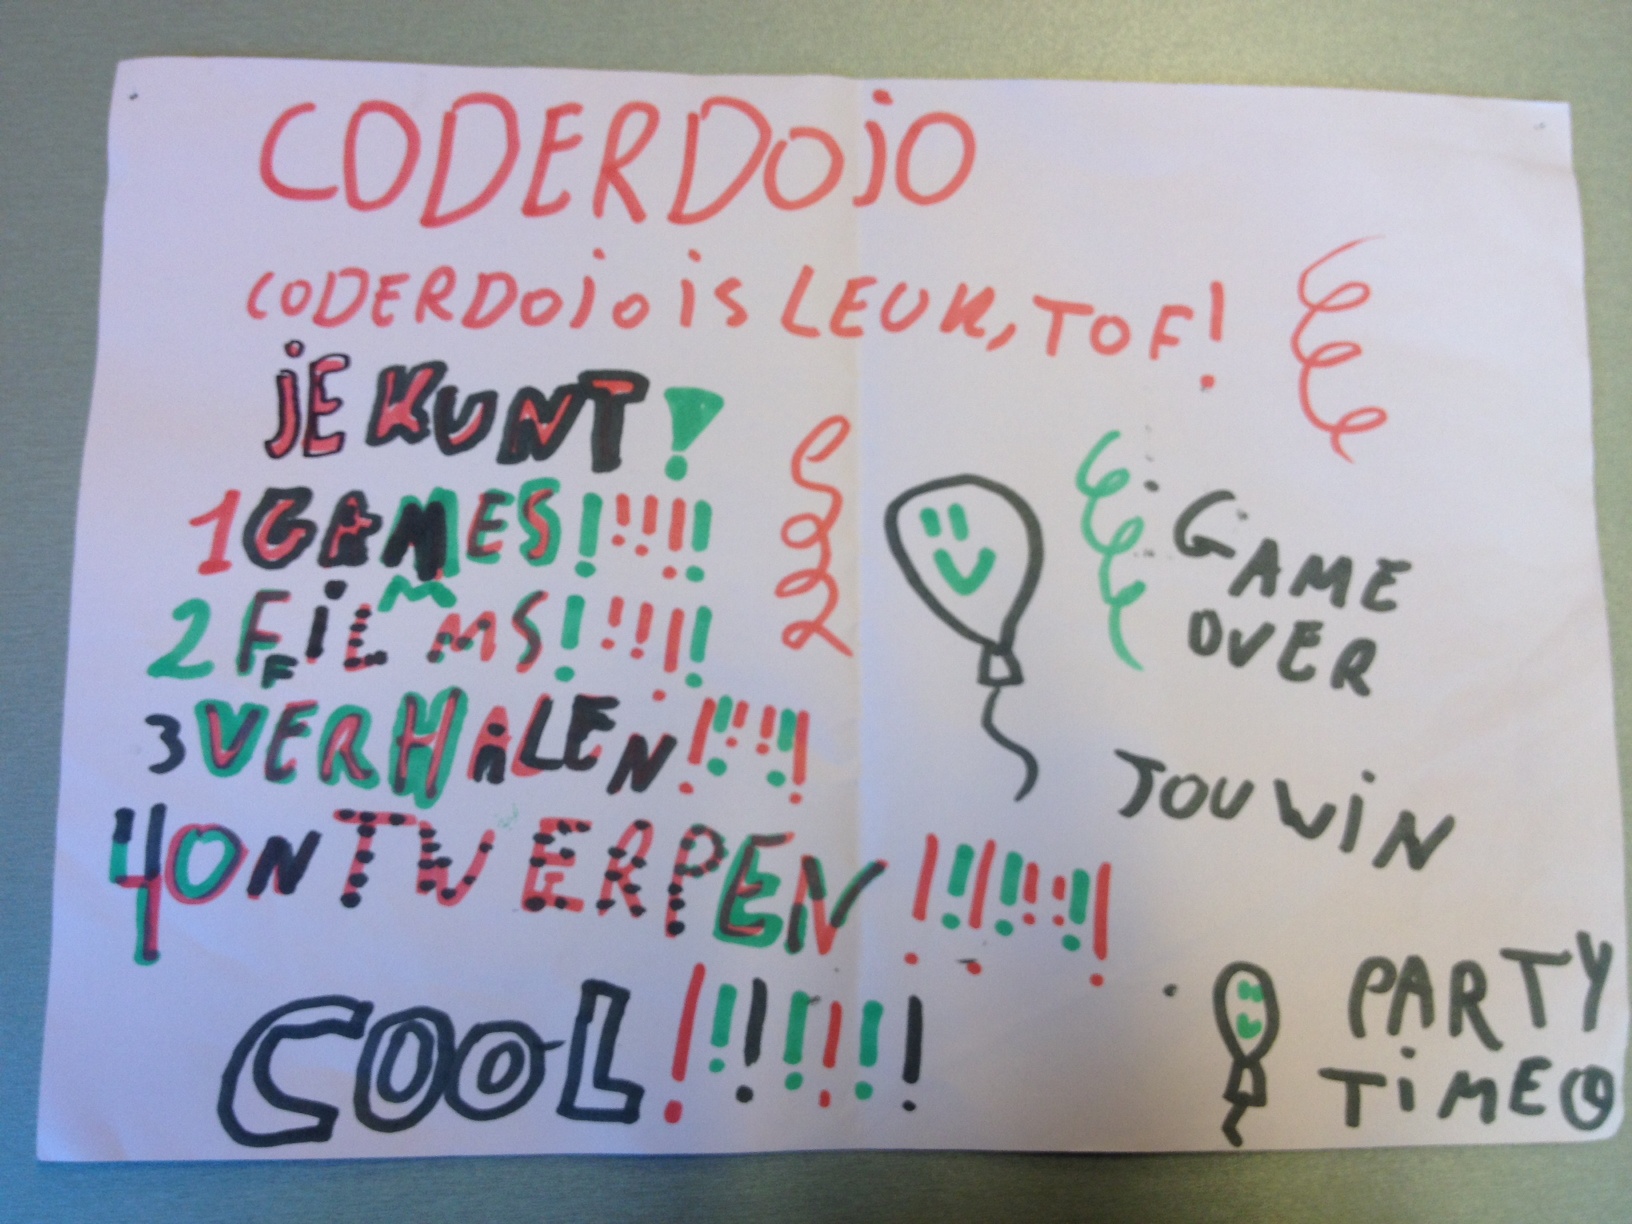 CODERDOjO
CODERDOjO is LEUK, TOF!
jE KUNT!
1 GAMES!!!!!
2 FiLMS!!!!!
3 VERHALEN!!!!!
4 ONTWERPEN!!!!!!!!
COOL!!!!!!!
GAME
OVER
JOU WiN
PARTY
TiME